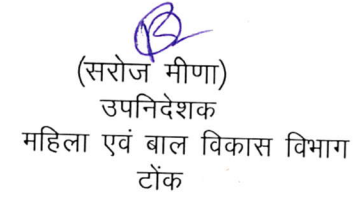 (सरोज मीणा)
उपनिदेशक
महिला एवं बाल विकास विभाग
टोंक